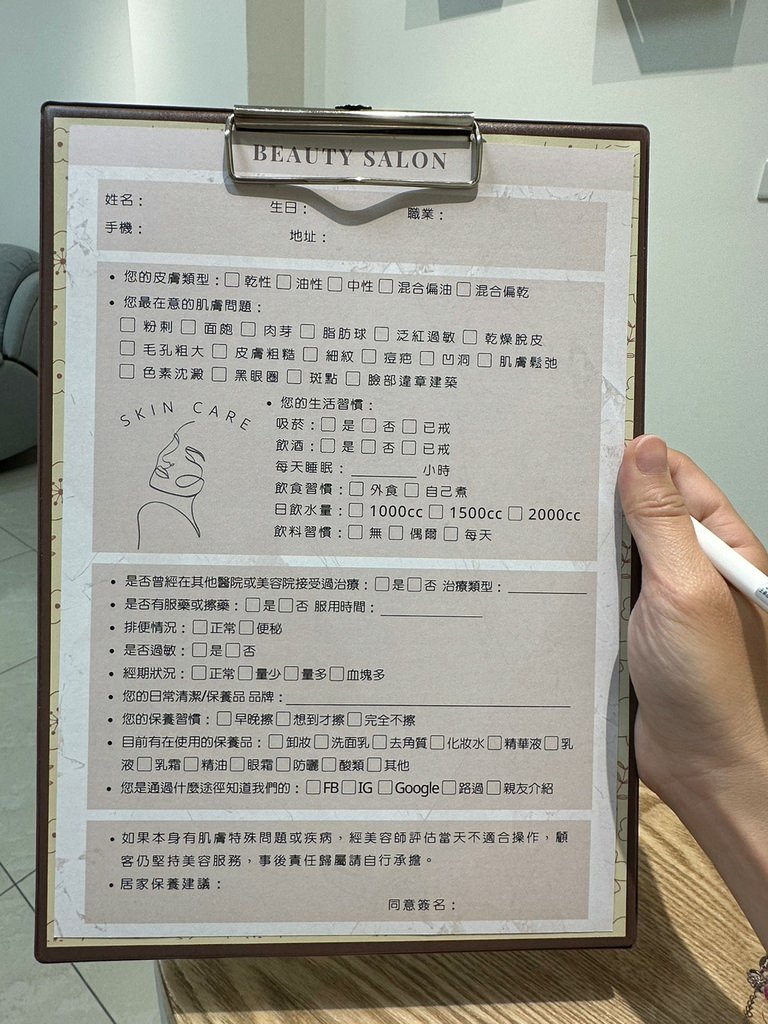 BEAUTY SALON
姓名： 生日： 職業：
手機： 地址：
• 您的皮膚類型：□ 乾性 □ 油性 □ 中性 □ 混合偏油 □ 混合偏乾
• 您最在意的肌膚問題：
□ 粉刺 □ 面皰 □ 肉芽 □ 脂肪球 □ 泛紅過敏 □ 乾燥脫皮
□ 毛孔粗大 □ 皮膚粗糙 □ 細紋 □ 痘疤 □ 凹洞 □ 肌膚鬆弛
□ 色素沈澱 □ 黑眼圈 □ 斑點 □ 臉部違章建築
SKIN CARE
• 您的生活習慣：
吸菸：□ 是 □ 否 □ 已戒
飲酒：□ 是 □ 否 □ 已戒
每天睡眠：________ 小時
飲食習慣：□ 外食 □ 自己煮
日飲水量：□ 1000cc □ 1500cc □ 2000cc
飲料習慣：□ 無 □ 偶爾 □ 每天
• 是否曾經在其他醫院或美容院接受過治療：□是□否 治療類型：__________
• 是否有服藥或擦藥：□是□否 服用時間：____________
• 排便情況：□正常□便秘
• 是否過敏：□是□否
• 經期狀況：□正常□量少□量多□血塊多
• 您的日常清潔/保養品 品牌：______________________________
• 您的保養習慣：□早晚擦□想到才擦□完全不擦
• 目前有在使用的保養品：□卸妝□洗面乳□去角質□化妝水□精華液□乳
液□乳霜□精油□眼霜□防曬□酸類□其他
• 您是通過什麼途徑知道我們的：□FB□IG □Google□路過□親友介紹
• 如果本身有肌膚特殊問題或疾病，經美容師評估當天不適合操作，顧
客仍堅持美容服務，事後責任歸屬請自行承擔。
• 居家保養建議：
同意簽名：